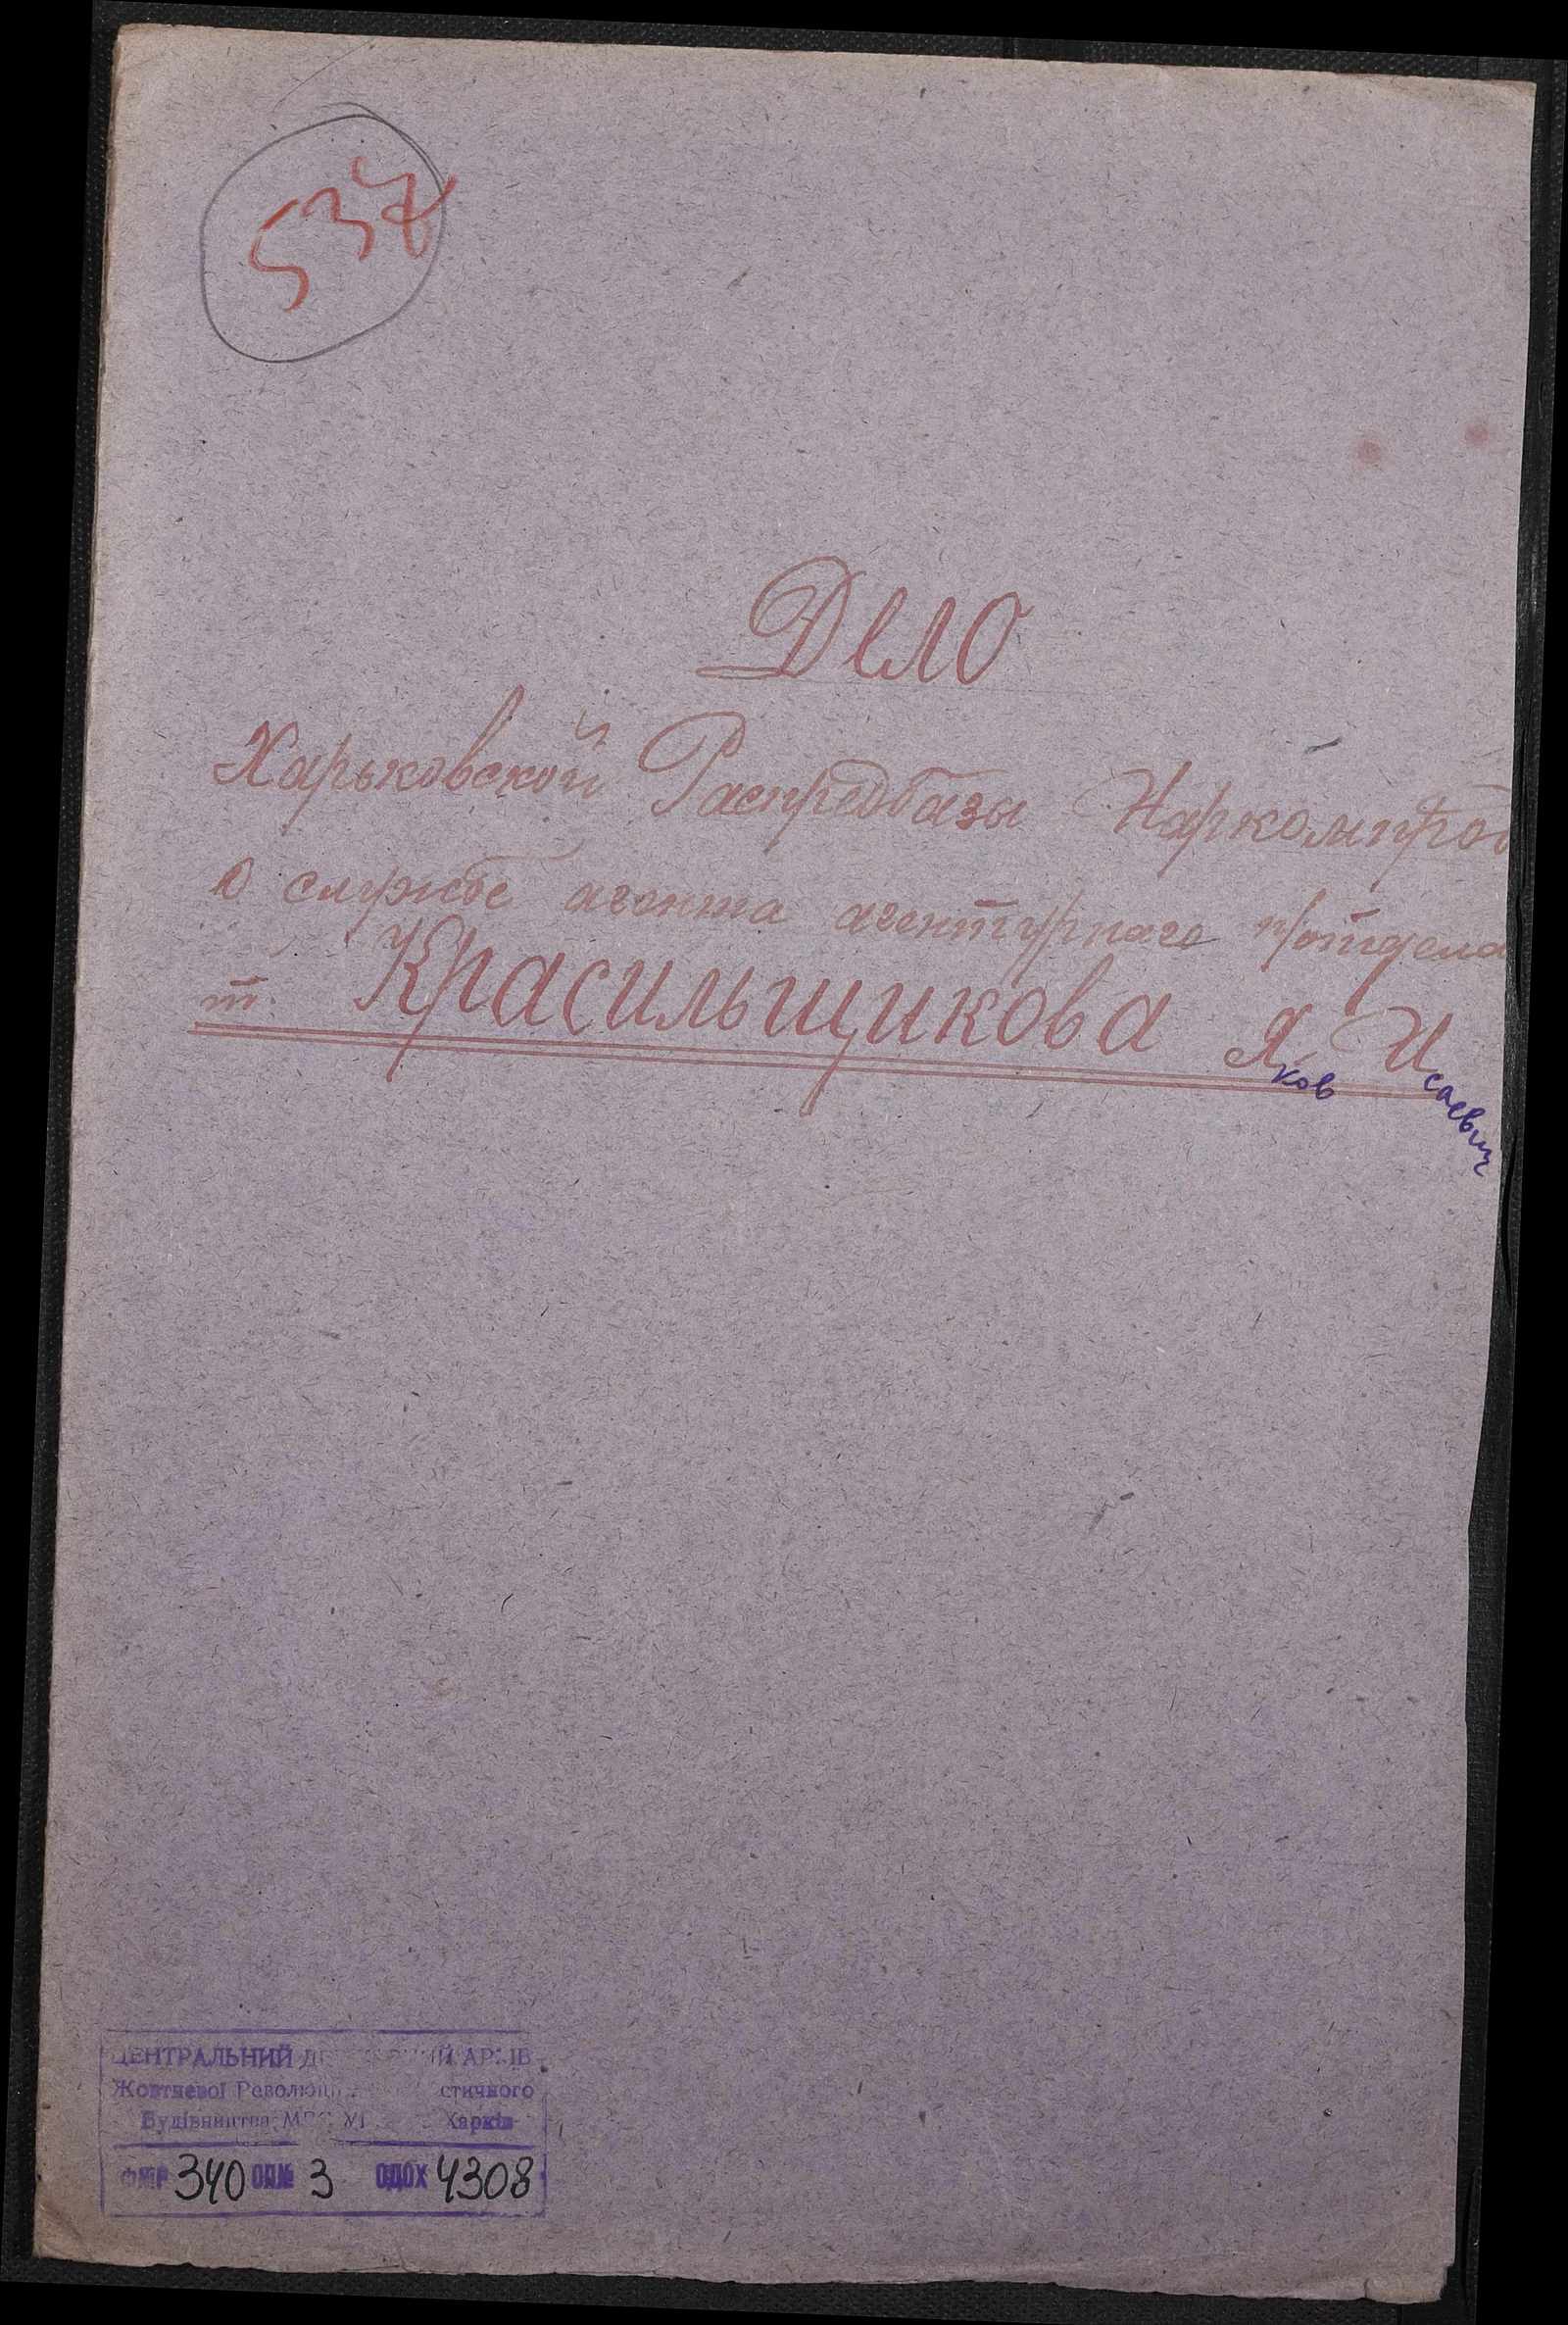 537
Дело
Харьковской Распредбазы Наркомпрод
о службе агента агентурнаго п/отдела
т. Красильщикова Яков Исаевич
ЦЕНТРАЛЬНИЙ АРХІВ
Жовтневої Революції стичного
Будівництва Харків
Ф№Р 340 ОП№ 3 ОДОХ 4308